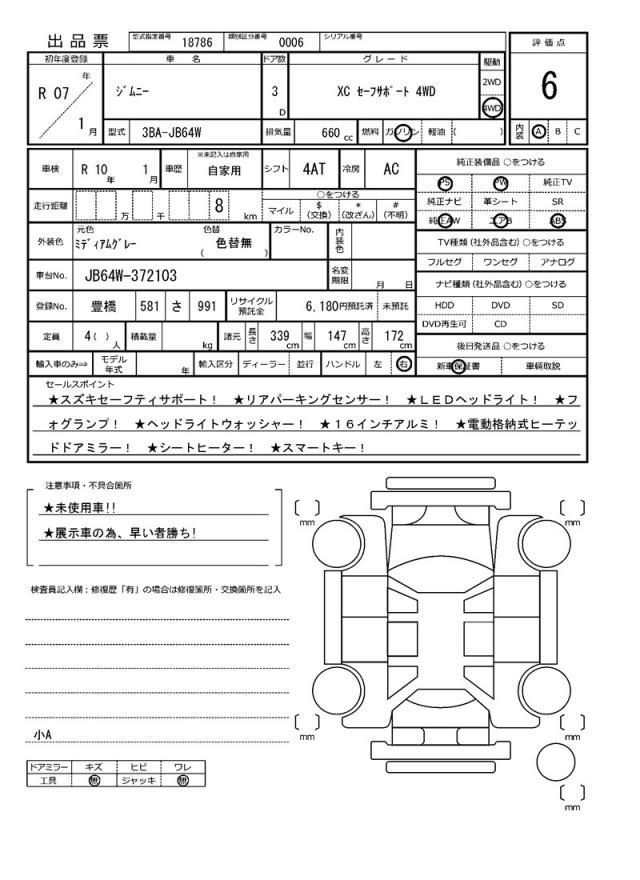 出 品 票
型式指定番号 18786 類別区分番号 0006 シリアル番号
評 価 点
6
初年度登録 車 名 ドア数 グ レ ー ド 駆動
R 07 年 1 月
ｼﾞﾑﾆｰ
3 D
XC ｾｰﾌｻﾎﾟｰﾄ 4WD
2WD
4WD
型式 3BA-JB64W 排気量 660 cc 燃料 ガソリン 軽油 ( )
内装 A B C
車検 R 10 年 1 月 車歴 ※未記入は自家用 自家用 シフト 4AT 冷房 AC
純正装備品 ○をつける
PS PW 純正TV
純正ナビ 革シート SR
純正AW エアB ABS
走行距離 万 千 8 km
○をつける
マイル $(交換) *(改ざん) #(不明)
外装色 元色 ﾐﾃﾞｨｱﾑｸﾞﾚｰ 色替 ( 色替無 ) カラーNo. 内装色
TV種類 (社外品含む) ○をつける
フルセグ ワンセグ アナログ
車台No. JB64W-372103 名変期限 月 日
ナビ種類 (社外品含む) ○をつける
HDD DVD SD
DVD再生可 CD
登録No. 豊橋 581 さ 991 リサイクル預託金 6,180円預託済 未預託
定員 4( ) 人 積載量 kg 諸元 長さ 339 cm 幅 147 cm 高さ 172 cm
後日発送品 ○をつける
新車保証書 車輌取説
輸入車のみ⇒ モデル年式 年 輸入区分 ディーラー 並行 ハンドル 左 右
セールスポイント
★スズキセーフティサポート！ ★リアパーキングセンサー！ ★ＬＥＤヘッドライト！ ★フ
ォグランプ！ ★ヘッドライトウォッシャー！ ★１６インチアルミ！ ★電動格納式ヒーテッ
ドドアミラー！ ★シートヒーター！ ★スマートキー！
注意事項・不具合箇所
★未使用車!!
★展示車の為、早い者勝ち!
検査員記入欄：修復歴「有」の場合は修復箇所・交換箇所を記入
小A
ドアミラー キズ ヒビ ワレ
工具 無 ジャッキ 無
〔 〕 mm
〔 〕 mm
〔 〕 mm
〔 〕 mm
〔 〕 mm